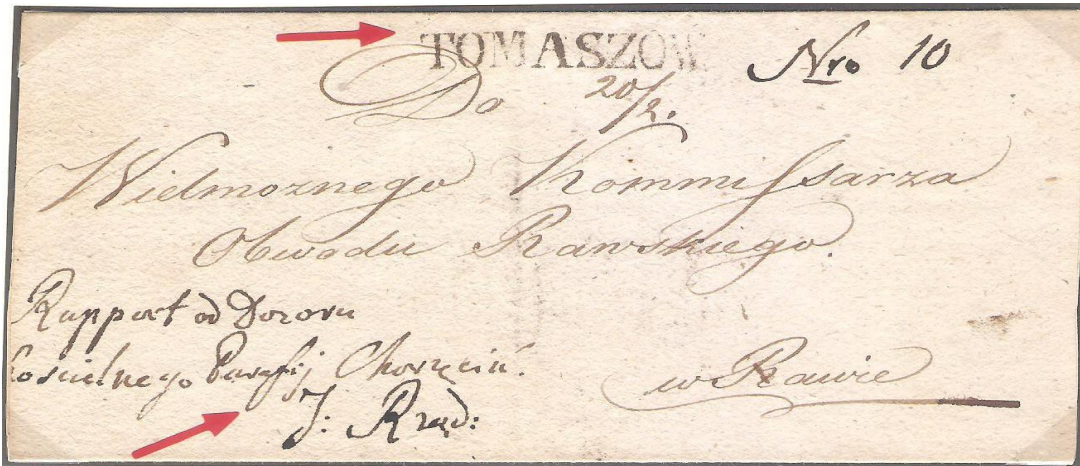 TOMASZOW
Nro 10
Do 20/2.
Wielmoznego Kommissarza
Obwodu Rawskiego.
Rapport od Dozoru
Kościelnego Parafij Chorzęcin.
J: Rząd:
w Rawie